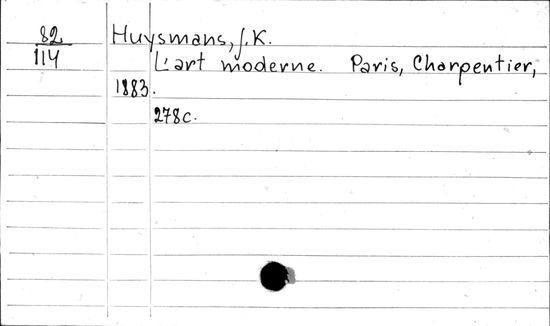 82
114
Huysmans, J.K.
L'art moderne. Paris, Charpentier,
1883.
278c.